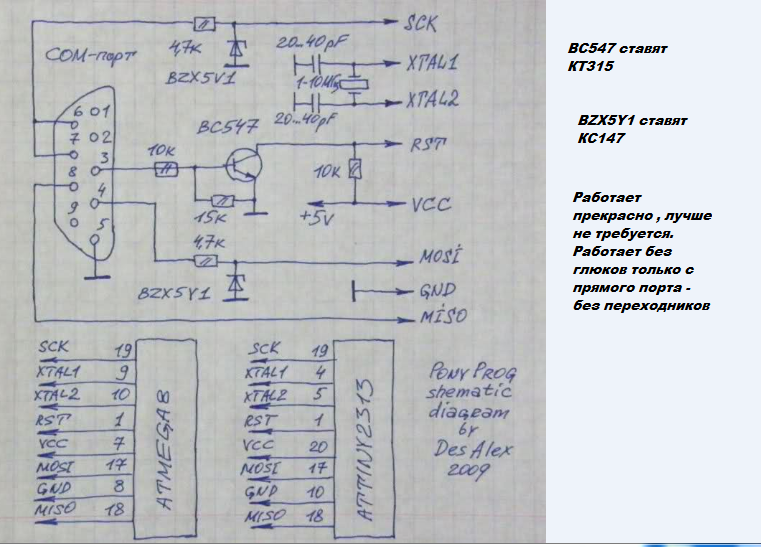 SCK
4,7К
BZX5V1
COM-порт
20...40pF
XTAL1
1-10МГц
XTAL2
20...40pF
BC547
6 1
7 2
8 3
9 4
5
10К
15К
RST
10К
+5V
VCC
4,7К
BZX5Y1
MOSİ
GND
MİSO
SCK 19
XTAL1 9
XTAL2 10
RST 1
VCC 7
MOSİ 17
GND 8
MISO 18
ATMEGA8
SCK 19
XTAL1 4
XTAL2 5
RST 1
VCC 20
MOSİ 17
GND 10
MISO 18
ATTINY2313
PONY PROG
shematic
diagram
by
Des Alex
2009
BC547 ставят
КТ315
BZX5Y1 ставят
КС147
Работает
прекрасно , лучше
не требуется.
Работает без
глюков только с
прямого порта -
без переходников